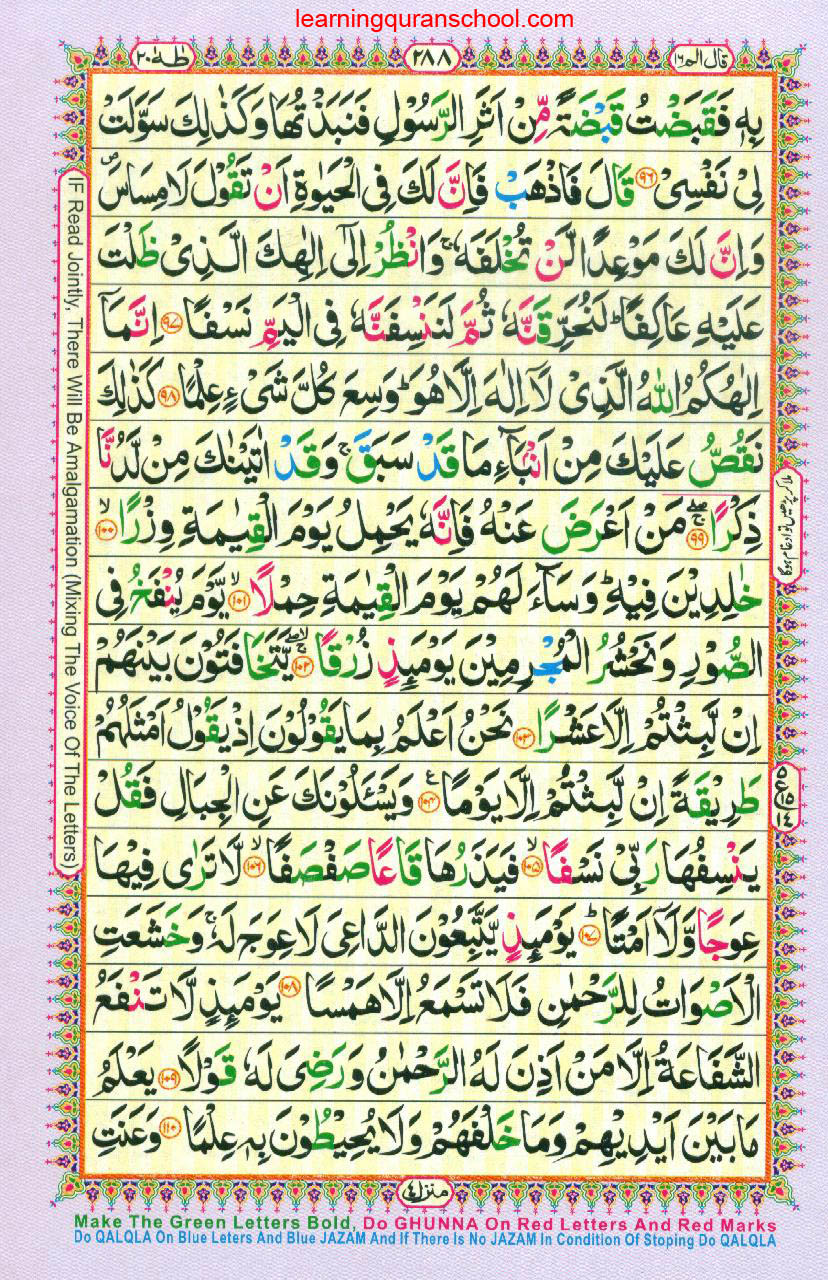 learningquranschool.com
قال الم ١٦
٢٨٨
طٰهٰ ٢٠
بِهٖ فَقَبَضْتُ قَبْضَةً مِّنْ اَثَرِ الرَّسُوْلِ فَنَبَذْتُهَا وَكَذٰلِكَ سَوَّلَتْ
لِیْ نَفْسِیْ ﴿۹۶﴾ قَالَ فَاذْهَبْ فَاِنَّ لَكَ فِی الْحَیٰوةِ اَنْ تَقُوْلَ لَا مِسَاسَ ۪
وَاِنَّ لَكَ مَوْعِدًا لَّنْ تُخْلَفَهٗ ۚ وَانْظُرْ اِلٰۤی اِلٰهِكَ الَّذِیْ ظَلْتَ
عَلَیْهِ عَاكِفًا ؕ لَنُحَرِّقَنَّهٗ ثُمَّ لَنَنْسِفَنَّهٗ فِی الْیَمِّ نَسْفًا ﴿۹۷﴾ اِنَّمَاۤ
اِلٰهُكُمُ اللّٰهُ الَّذِیْ لَاۤ اِلٰهَ اِلَّا هُوَ ؕ وَسِعَ كُلَّ شَیْءٍ عِلْمًا ﴿۹۸﴾ كَذٰلِكَ
نَقُصُّ عَلَیْكَ مِنْ اَنْۢبَآءِ مَا قَدْ سَبَقَ ۚ وَقَدْ اٰتَیْنٰكَ مِنْ لَّدُنَّا
ذِكْرًا ﴿۹۹﴾ مَنْ اَعْرَضَ عَنْهُ فَاِنَّهٗ یَحْمِلُ یَوْمَ الْقِیٰمَةِ وِزْرًا ﴿۱۰۰﴾ ۙ
خٰلِدِیْنَ فِیْهِ ؕ وَسَآءَ لَهُمْ یَوْمَ الْقِیٰمَةِ حِمْلًا ﴿۱۰۱﴾ ۙ یَّوْمَ یُنْفَخُ فِی
الصُّوْرِ وَنَحْشُرُ الْمُجْرِمِیْنَ یَوْمَىِٕذٍ زُرْقًا ﴿۱۰۲﴾ یَّتَخَافَتُوْنَ بَیْنَهُمْ
اِنْ لَّبِثْتُمْ اِلَّا عَشْرًا ﴿۱۰۳﴾ نَحْنُ اَعْلَمُ بِمَا یَقُوْلُوْنَ اِذْ یَقُوْلُ اَمْثَلُهُمْ
طَرِیْقَةً اِنْ لَّبِثْتُمْ اِلَّا یَوْمًا ﴿۱۰۴﴾ ع وَیَسْـَٔلُوْنَكَ عَنِ الْجِبَالِ فَقُلْ
یَنْسِفُهَا رَبِّیْ نَسْفًا ﴿۱۰۵﴾ ۙ فَیَذَرُهَا قَاعًا صَفْصَفًا ﴿۱۰۶﴾ ۙ لَّا تَرٰی فِیْهَا
عِوَجًا وَّلَاۤ اَمْتًا ﴿۱۰۷﴾ ؕ یَوْمَىِٕذٍ یَّتَّبِعُوْنَ الدَّاعِیَ لَا عِوَجَ لَهٗ ۚ وَخَشَعَتِ
الْاَصْوَاتُ لِلرَّحْمٰنِ فَلَا تَسْمَعُ اِلَّا هَمْسًا ﴿۱۰۸﴾ یَوْمَىِٕذٍ لَّا تَنْفَعُ
الشَّفَاعَةُ اِلَّا مَنْ اَذِنَ لَهُ الرَّحْمٰنُ وَرَضِیَ لَهٗ قَوْلًا ﴿۱۰۹﴾ یَعْلَمُ
مَا بَیْنَ اَیْدِیْهِمْ وَمَا خَلْفَهُمْ وَلَا یُحِیْطُوْنَ بِهٖ عِلْمًا ﴿۱۱۰﴾ وَعَنَتِ
منزل ٤
IF Read Jointly, There Will Be Amalgamation (Mixing The Voice Of The Letters)
Make The Green Letters Bold, Do GHUNNA On Red Letters And Red Marks
Do QALQLA On Blue Leters And Blue JAZAM And If There Is No JAZAM In Condition Of Stoping Do QALQLA